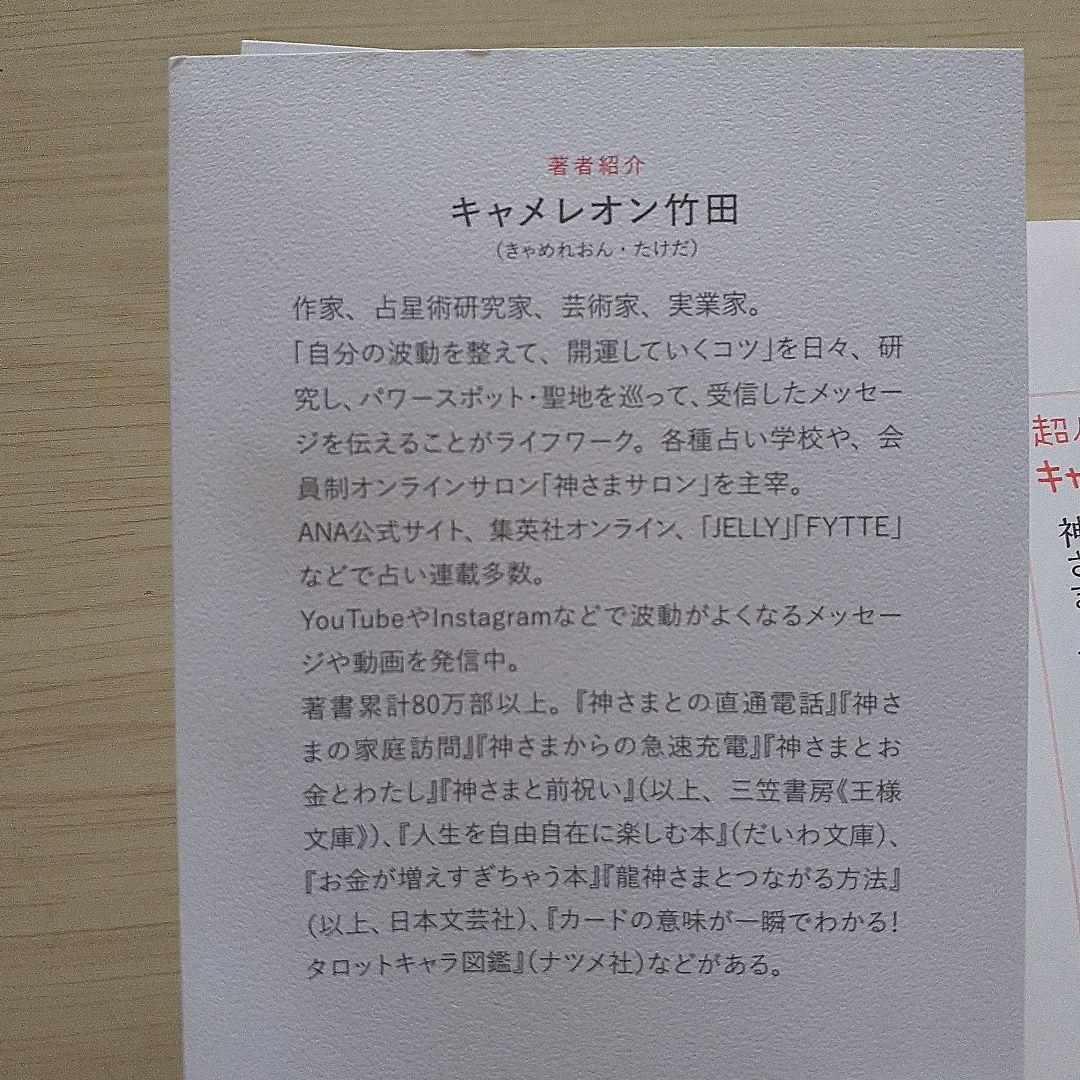 著者紹介
キャメレオン竹田
(きゃめれおん・たけだ)
作家、占星術研究家、芸術家、実業家。
「自分の波動を整えて、開運していくコツ」を日々、研
究し、パワースポット・聖地を巡って、受信したメッセー
ジを伝えることがライフワーク。各種占い学校や、会
員制オンラインサロン「神さまサロン」を主宰。
ANA公式サイト、集英社オンライン、「JELLY」「FYTTE」
などで占い連載多数。
YouTubeやInstagramなどで波動がよくなるメッセー
ジや動画を発信中。
著書累計80万部以上。『神さまとの直通電話』『神さ
まの家庭訪問』『神さまからの急速充電』『神さまとお
金とわたし』『神さまと前祝い』(以上、三笠書房《王様
文庫》)、『人生を自由自在に楽しむ本』(だいわ文庫)、
『お金が増えすぎちゃう本』『龍神さまとつながる方法』
(以上、日本文芸社)、『カードの意味が一瞬でわかる!
タロットキャラ図鑑』(ナツメ社)などがある。
超
キャ
神さま